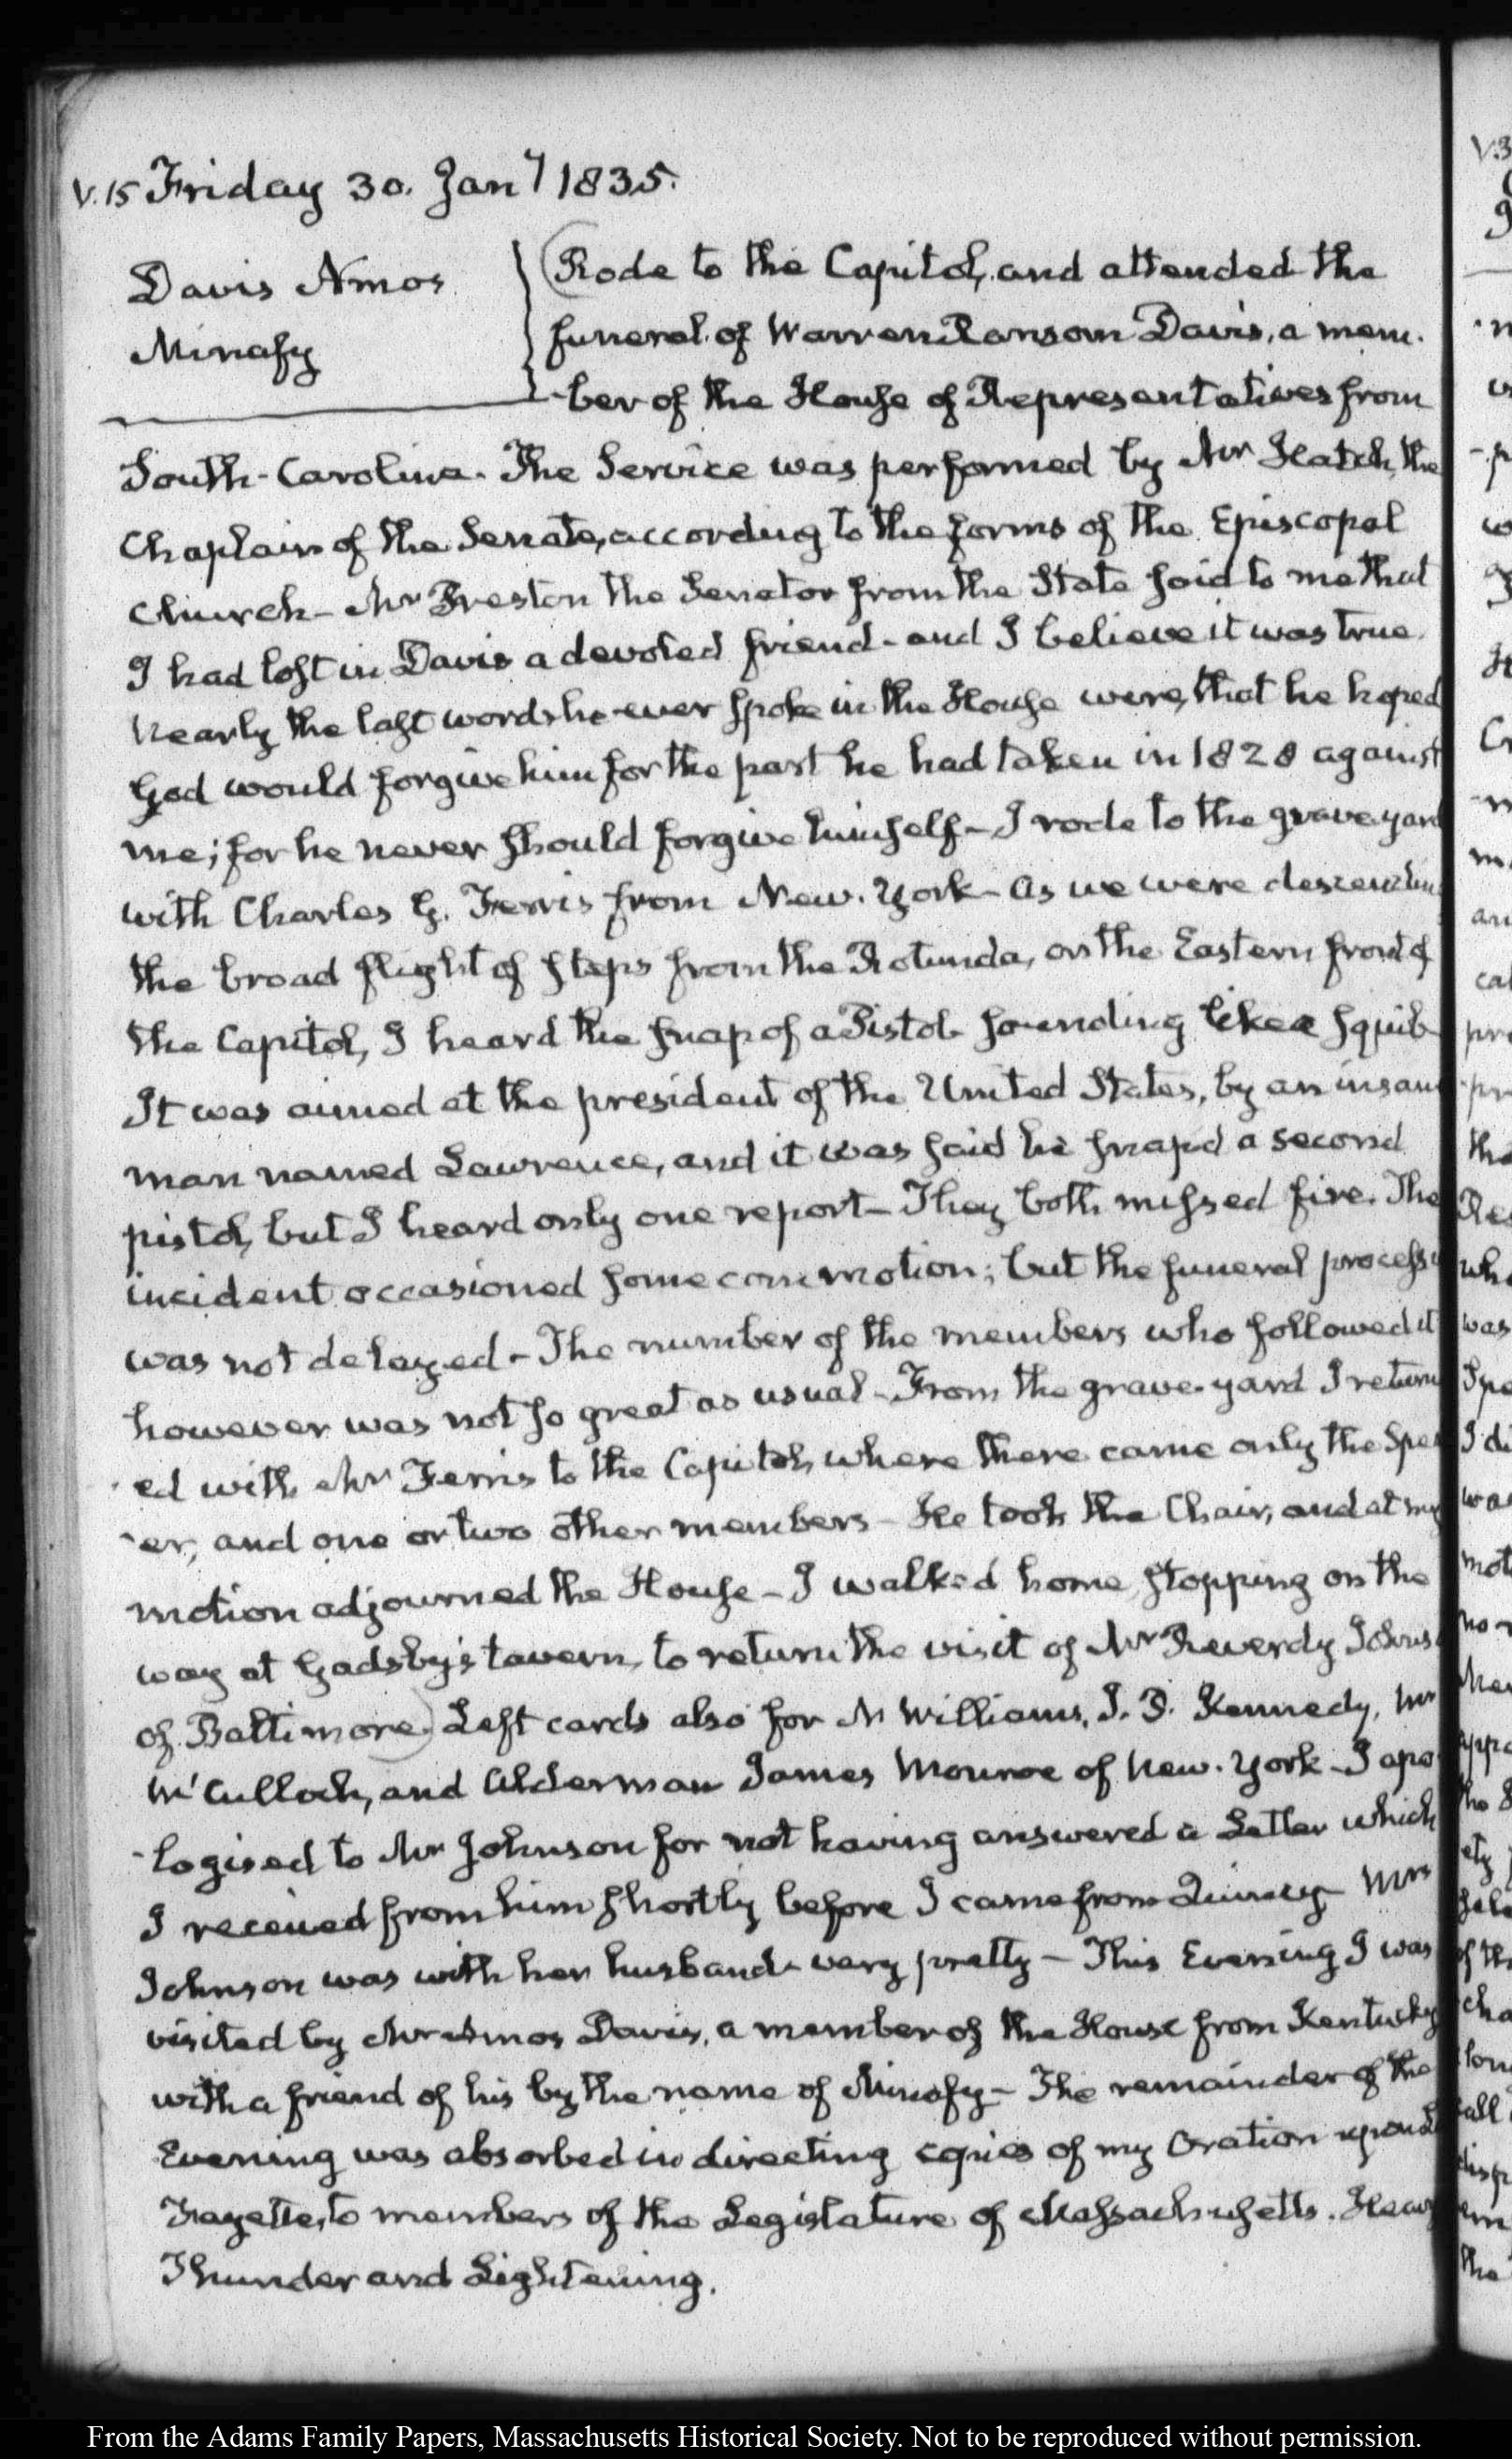 V.15 Friday 30. Jany 1835.
Davis Amos
Minafy
(Rode to the Capitol, and attended the
funeral of Warren Ransom Davis, a mem-
-ber of the House of Representatives from
South-Carolina. The Service was performed by Mr Hatch, the
Chaplain of the Senate, according to the forms of the Episcopal
Church – Mr Preston the Senator from the State said to me that
I had lost in Davis a devoted friend – and I believe it was true.
Nearly the last words he ever spoke in the House were, that he hoped
God would forgive him for the part he had taken in 1828 against
me; for he never should forgive himself – I rode to the grave yard
with Charles G. Ferris from New-York – As we were descending
the broad flight of steps from the Rotunda, on the Eastern front of
the Capitol, I heard the snap of a Pistol – sounding like a squib –
It was aimed at the president of the United States, by an insane
man named Lawrence, and it was said he snap'd a second
pistol, but I heard only one report – They both missed fire. The
incident occasioned some commotion; but the funeral process
was not delayed – The number of the members who followed it
however was not so great as usual – From the grave-yard I return
ed with Mr Ferris to the Capitol, where there came only the Spea
-er, and one or two other members – He took the Chair, and at my
motion adjourned the House – I walked home, stopping on the
way at Gadsby's tavern, to return the visit of Mr Reverdy Johns
of Baltimore.) Left cards also for N Williams, J. P. Kennedy, Mr
McCulloch, and Alderman James Monroe of New-York – I apo
-logised to Mr Johnson for not having answered a Letter which
I received from him shortly before I came from Quincy – Mrs
Johnson was with her husband – very pretty – This Evening I was
visited by Mr Amos Davis, a member of the House from Kentucky
with a friend of his by the name of Minafy – The remainder of the
Evening was absorbed in directing copies of my Oration upon La
Fayette, to members of the Legislature of Massachusetts. Heavy
Thunder and Lightening.
From the Adams Family Papers, Massachusetts Historical Society. Not to be reproduced without permission.